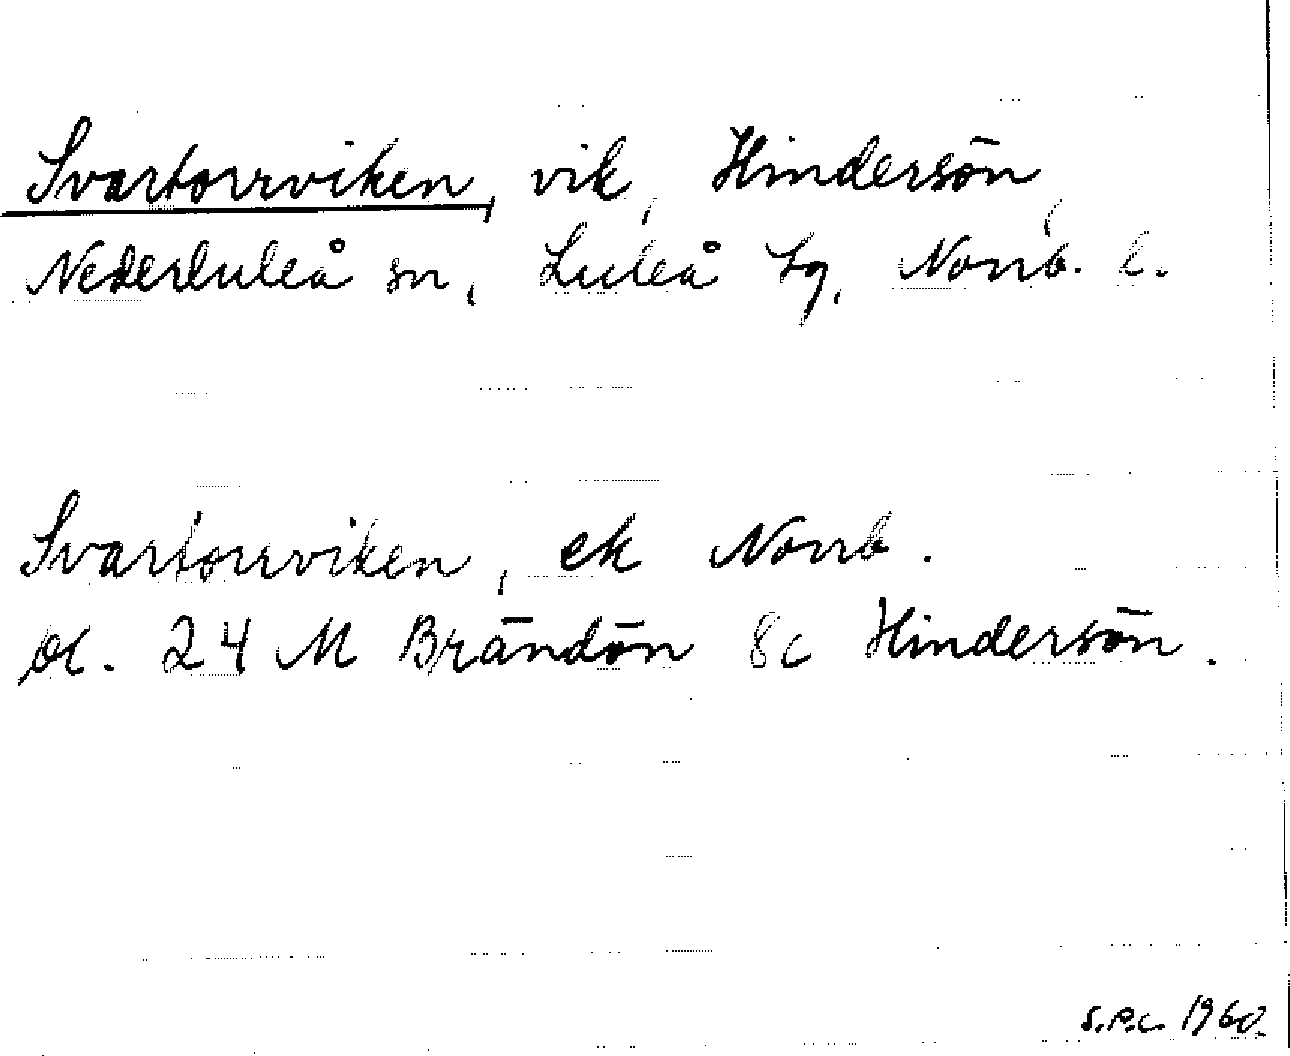 Svartorrviken, vik, Hindersön,
Nederluleå sn, Luleå tg, Norrb. l.
Svartorrviken, ek Norrb.
bl. 24 M Brändön 8c Hindersön.
S.P.C. 1960.